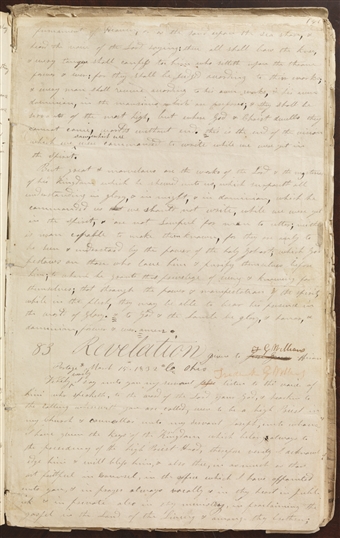 firmament of Heaven or as the sand upon the sea shore &
heard the voice of the Lord saying these all shall bow the knee
& every toungue shall confess to him who sitteth upon the throne
forever & ever for they shall be judged according to their works
& every man shall receive according to his own works & his own
dominion, in the mansions which are prepared & they shall be
servents of the most high but where God & Christ dwells they
cannot come, worlds without end this is the end of the vision
which we were commanded to write while we were yet in
the Spirit.
But great & marvelous are the works of the Lord & the mysteries
of his Kingdom which he showed unto us which surpasseth all
understanding in glory, & in might, & in dominion, which he
commanded us we should not write, while we were yet
in the spirit, & are not lawful for man to utter, neither
is man capable to make them known, for they are only to
be seen & understood by the power of the holy Ghost, which God
bestows on those who love him & purify themselves before
him; to whom he grants this privilege of seeing & knowing for
themselves; that through the power & manifestation of the spirit,
while in the flesh, they may be able to bear his presence in
the world of Glory. & to God & the Lamb be glory, & honor, &
dominion, forever & ever. amen
83 Revelation given to F G Williams Hiram
Portage March 15 1832 Co Ohio
Verily I say unto you my servant listen to the voice of
him who speaketh, to the word of the Lord your God, & hearken to
the calling wherewith you are called, even to be a high Priest in
my church & councellor unto my servant Joseph, unto whom
I have given the Keys of the Kingdom which belongs always to
the Presidency of the high Priest Hood, therefore verily I acknowl
edge him & will bless him, & also thee, in as much as thou
art faithful in council, in the office which I have appointed
unto you, & in prayer always vocally & in thy heart, in publick
& in private also in thy ministry in proclaiming the
gospel in the land of the living & among thy brethren;